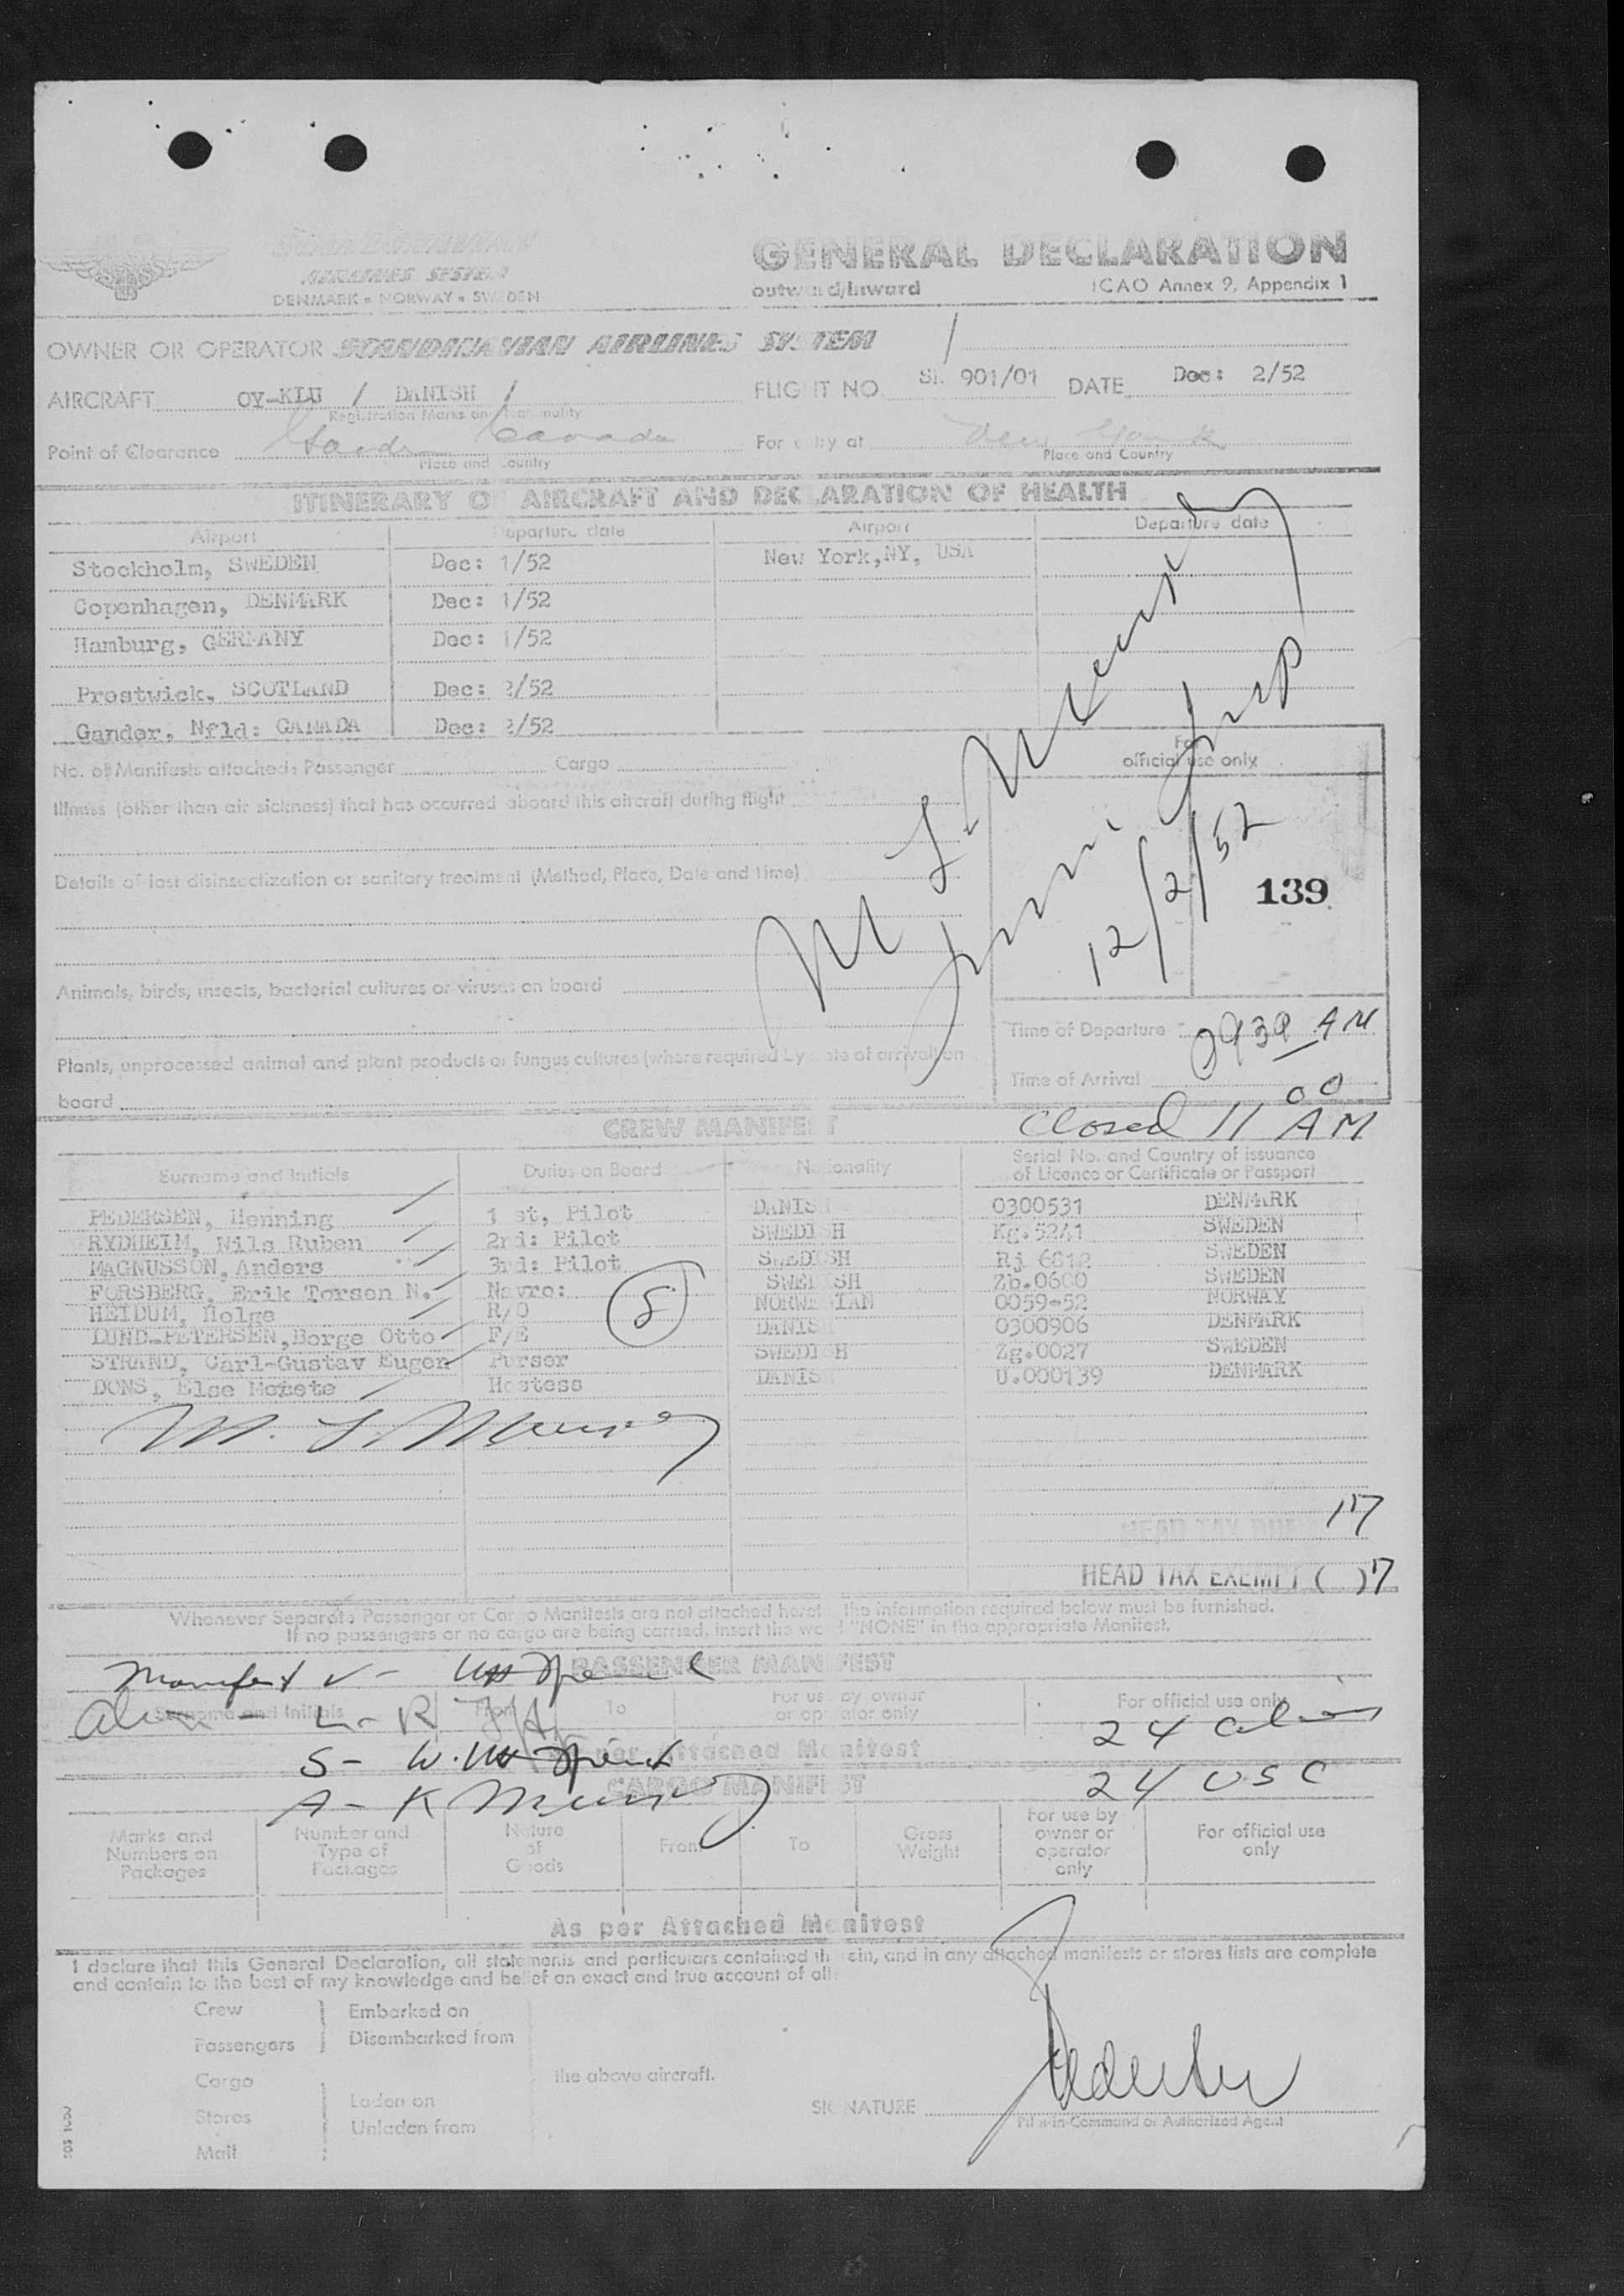 SCANDINAVIAN
AIRLINES SYSTEM
DENMARK • NORWAY • SWEDEN
GENERAL DECLARATION
outward/Inward ICAO Annex 9, Appendix 1
OWNER OR OPERATOR SCANDINAVIAN AIRLINES SYSTEM
AIRCRAFT OY-KLU / DANISH / FLIGHT NO. SK 901/01 DATE Dec: 2/52
Registration Marks and Nationality
Point of Clearance Canada For entry at New York
Place and Country Place and Country
ITINERARY OF AIRCRAFT AND DECLARATION OF HEALTH
Airport Departure date Airport Departure date
Stockholm, SWEDEN Dec: 1/52 New York,NY, USA
Copenhagen, DENMARK Dec: 1/52
Hamburg, GERMANY Dec: 1/52
Prestwick, SCOTLAND Dec: 2/52
Gander, Nfld: CANADA Dec: 2/52
No. of Manifests attached: Passenger Cargo
For official use only
Illness (other than air sickness) that has occurred aboard this aircraft during flight
Details of last disinsectization or sanitary treatment (Method, Place, Date and time)
12/2/52
139
Animals, birds, insects, bacterial cultures or viruses on board
Time of Departure 0930 AM
Plants, unprocessed animal and plant products or fungus cultures (where required by state of arrival) on
board
Time of Arrival
Closed 11 00 AM
CREW MANIFEST
Surname and Initials Duties on Board Nationality Serial No. and Country of issuance
of Licence or Certificate or Passport
PEDERSEN, Henning 1 st, Pilot DANISH 0300531 DENMARK
RYDHEIM, Nils Ruben 2nd: Pilot SWEDISH Kg.5241 SWEDEN
MAGNUSSON, Anders 3rd: Pilot SWEDISH Rj 6812 SWEDEN
FORSBERG, Erik Torson N. Navro: SWEDISH Zb.0600 SWEDEN
HEIDUM, Holge R/O NORWEGIAN 0059-52 NORWAY
LUND-PETERSEN,Borge Otto F/E DANISH 0300906 DENMARK
STRAND, Carl-Gustav Eugen Purser SWEDISH Zg.0027 SWEDEN
DONS, Else Merete Hostess DANISH U.000139 DENMARK
8
HEAD TAX DUE 17
HEAD TAX EXEMPT ( ) 7
Whenever Separate Passenger or Cargo Manifests are not attached hereto the information required below must be furnished.
If no passengers or no cargo are being carried, insert the word "NONE" in the appropriate Manifest.
PASSENGER MANIFEST
Manifest
Surname and Initials From To For use by owner or operator only For official use only
24 aliens
As per Attached Manifest
24 USC
CARGO MANIFEST
Marks and Numbers on Packages Number and Type of Packages Nature of Goods From To Gross Weight For use by owner or operator only For official use only
As per Attached Manifest
I declare that this General Declaration, all statements and particulars contained therein, and in any attached manifests or stores lists are complete
and contain to the best of my knowledge and belief an exact and true account of all:
Crew Embarked on
Passengers Disembarked from
Cargo the above aircraft.
Stores Laden on
Mail Unladen from
SIGNATURE Pedersen
Pilot-in-Command or Authorized Agent